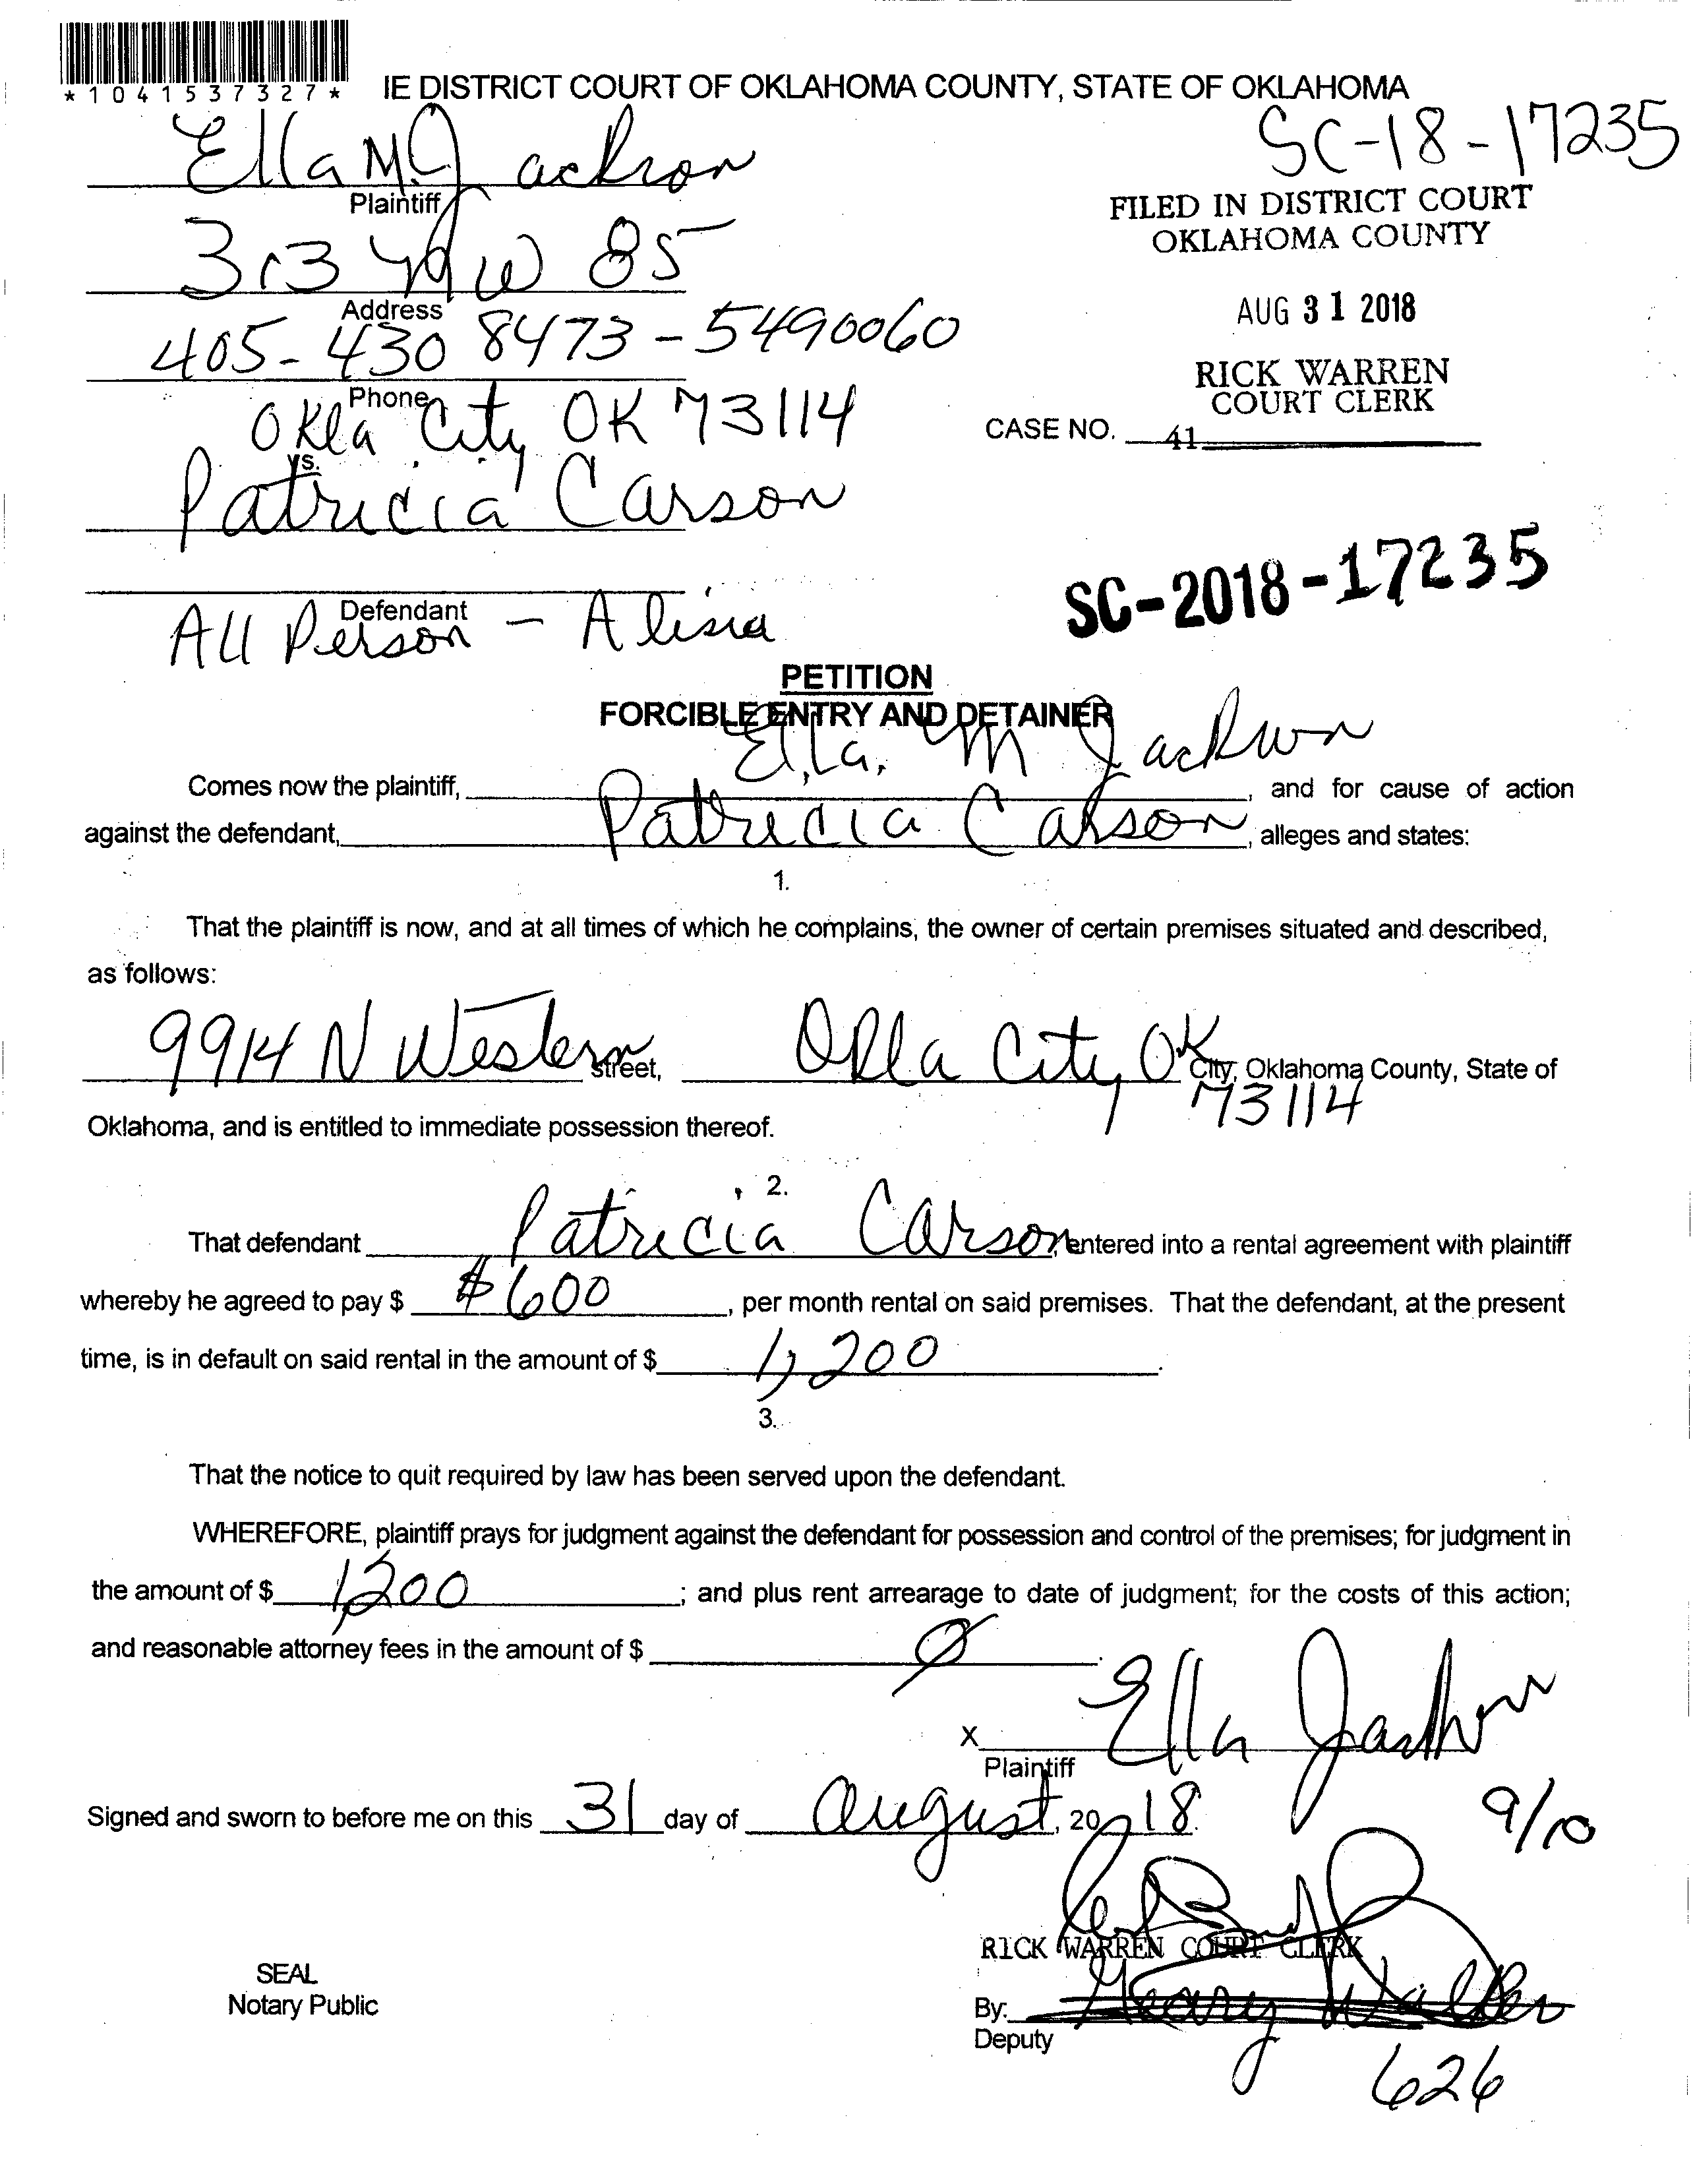 *1041537327*
IE DISTRICT COURT OF OKLAHOMA COUNTY, STATE OF OKLAHOMA
Ella M. Jackson
SC-18-17235
Plaintiff
FILED IN DISTRICT COURT
OKLAHOMA COUNTY
313 NW 85
Address
AUG 31 2018
405-430 8473-5490060
Phone
RICK WARREN
COURT CLERK
Okla City OK 73114
CASE NO. 41
vs.
Patricia Carson
SC-2018-17235
Defendant
All Person - Alisia
PETITION
FORCIBLE ENTRY AND DETAINER
Comes now the plaintiff, Ella. M Jackson, and for cause of action
against the defendant, Patricia Carson, alleges and states:
1.
That the plaintiff is now, and at all times of which he complains, the owner of certain premises situated and described,
as follows:
9914 N Western Street, Okla City OK City, Oklahoma County, State of
73114
Oklahoma, and is entitled to immediate possession thereof.
2.
That defendant Patricia Carson, entered into a rental agreement with plaintiff
whereby he agreed to pay $ $600, per month rental on said premises. That the defendant, at the present
time, is in default on said rental in the amount of $ 1,200.
3.
That the notice to quit required by law has been served upon the defendant.
WHEREFORE, plaintiff prays for judgment against the defendant for possession and control of the premises; for judgment in
the amount of $ 1,200; and plus rent arrearage to date of judgment; for the costs of this action;
and reasonable attorney fees in the amount of $ Ø.
X Ella Jackson
Plaintiff
Signed and sworn to before me on this 31 day of August, 2018.
9/10
RICK WARREN COURT CLERK
SEAL
Notary Public
By:
Deputy
626